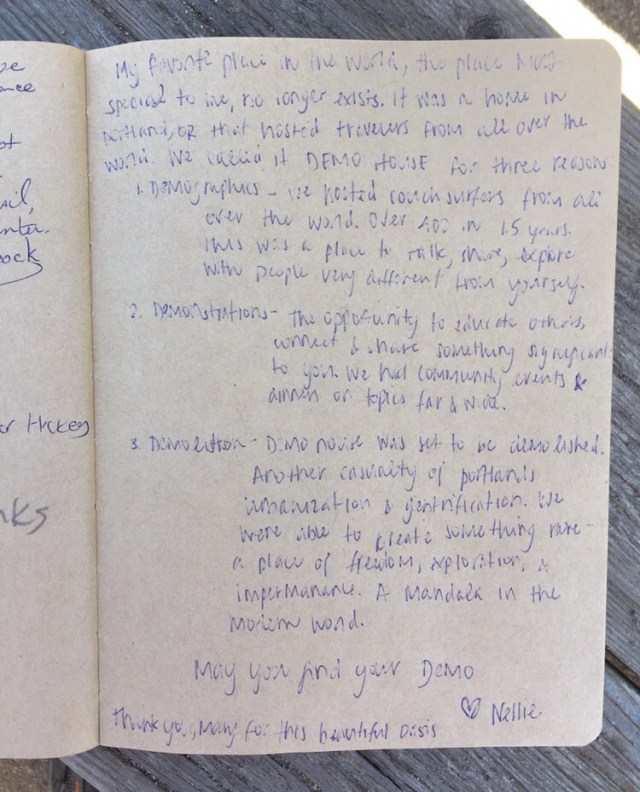 My favorite place in the world, the place most
special to me, no longer exists. It was a home in
Portland, OR that hosted travelers from all over the
world. We called it DEMO HOUSE for three reasons
1. Demographics - we hosted couchsurfers from all
over the world. Over 400 in 1.5 years.
This was a place to talk, share, explore
with people very different from yourself.
2. Demonstrations - The opportunity to educate others,
connect & share something significant
to you. We had community events &
dinners on topics far & wide.
3. Demolition - Demo house was set to be demolished.
Another casualty of portlands
urbanization & gentrification. We
were able to create something rare -
a place of freedom, exploration, &
impermanance. A Mandala in the
modern world.
May you find your DEMO
♡ Nellie
Thank you, Mary for this beautiful oasis
ock
or Hickey
nks